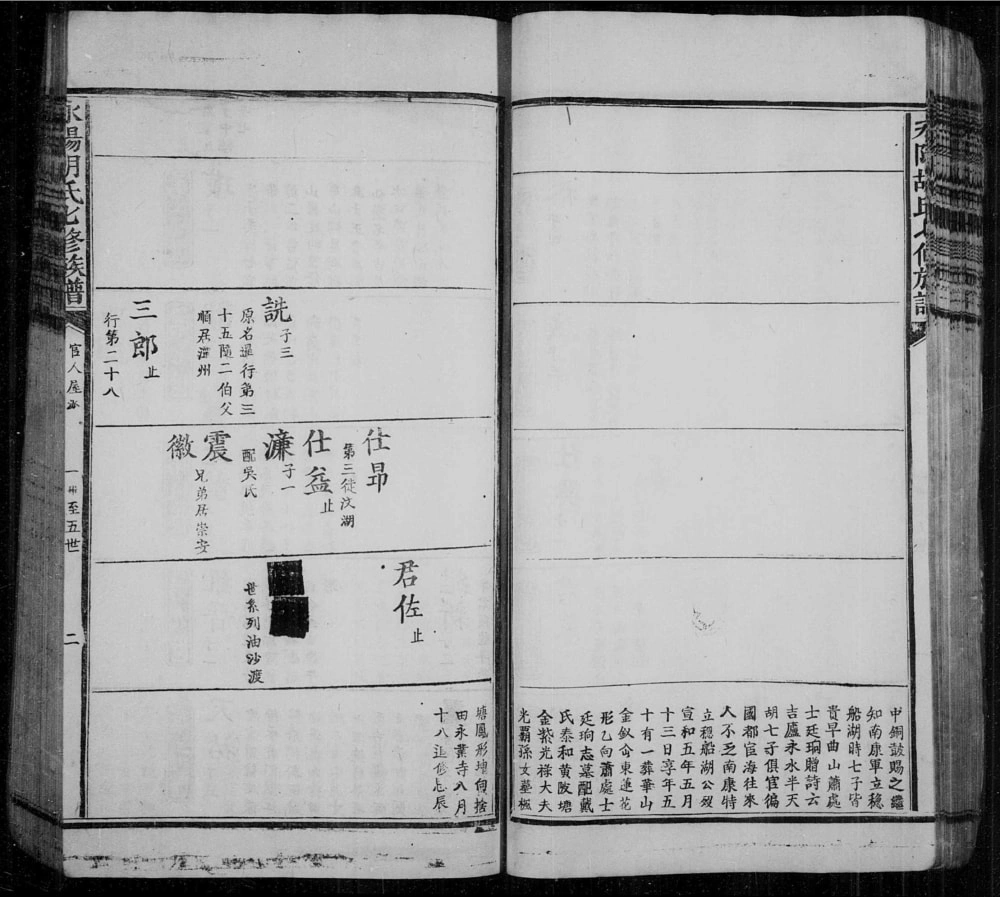 永陽胡氏七修族譜
申銅鼓賜之繼
知南康軍立穩
船湖時七子皆
貴早曲山蕭處
士廷珦贈詩云
吉廬永水半天
胡七子俱官徧
國都宦海往來
人不乏南康特
立穩船湖公歿
宣和五年五月
十三日享年五
十有一葬華山
金釵侖東蓮花
形乙向蕭處士
廷珦志墓配戴
氏泰和黃陂塘
金紫光祿大夫
光霸孫女墓楓
塘鳳形壇側捨
田永業寺八月
十八追修忌辰
詵
子三
原名暹行第三
十五隨二伯父
順居澧州
三郎
止
行第二十八
仕昂
第三徒汶湖
仕益
止
濂
子一
配吳氏
震
徽
兄弟居崇安
君佐
止
世系列油沙渡
永陽胡氏七修族譜
官人屋派
至五世
二